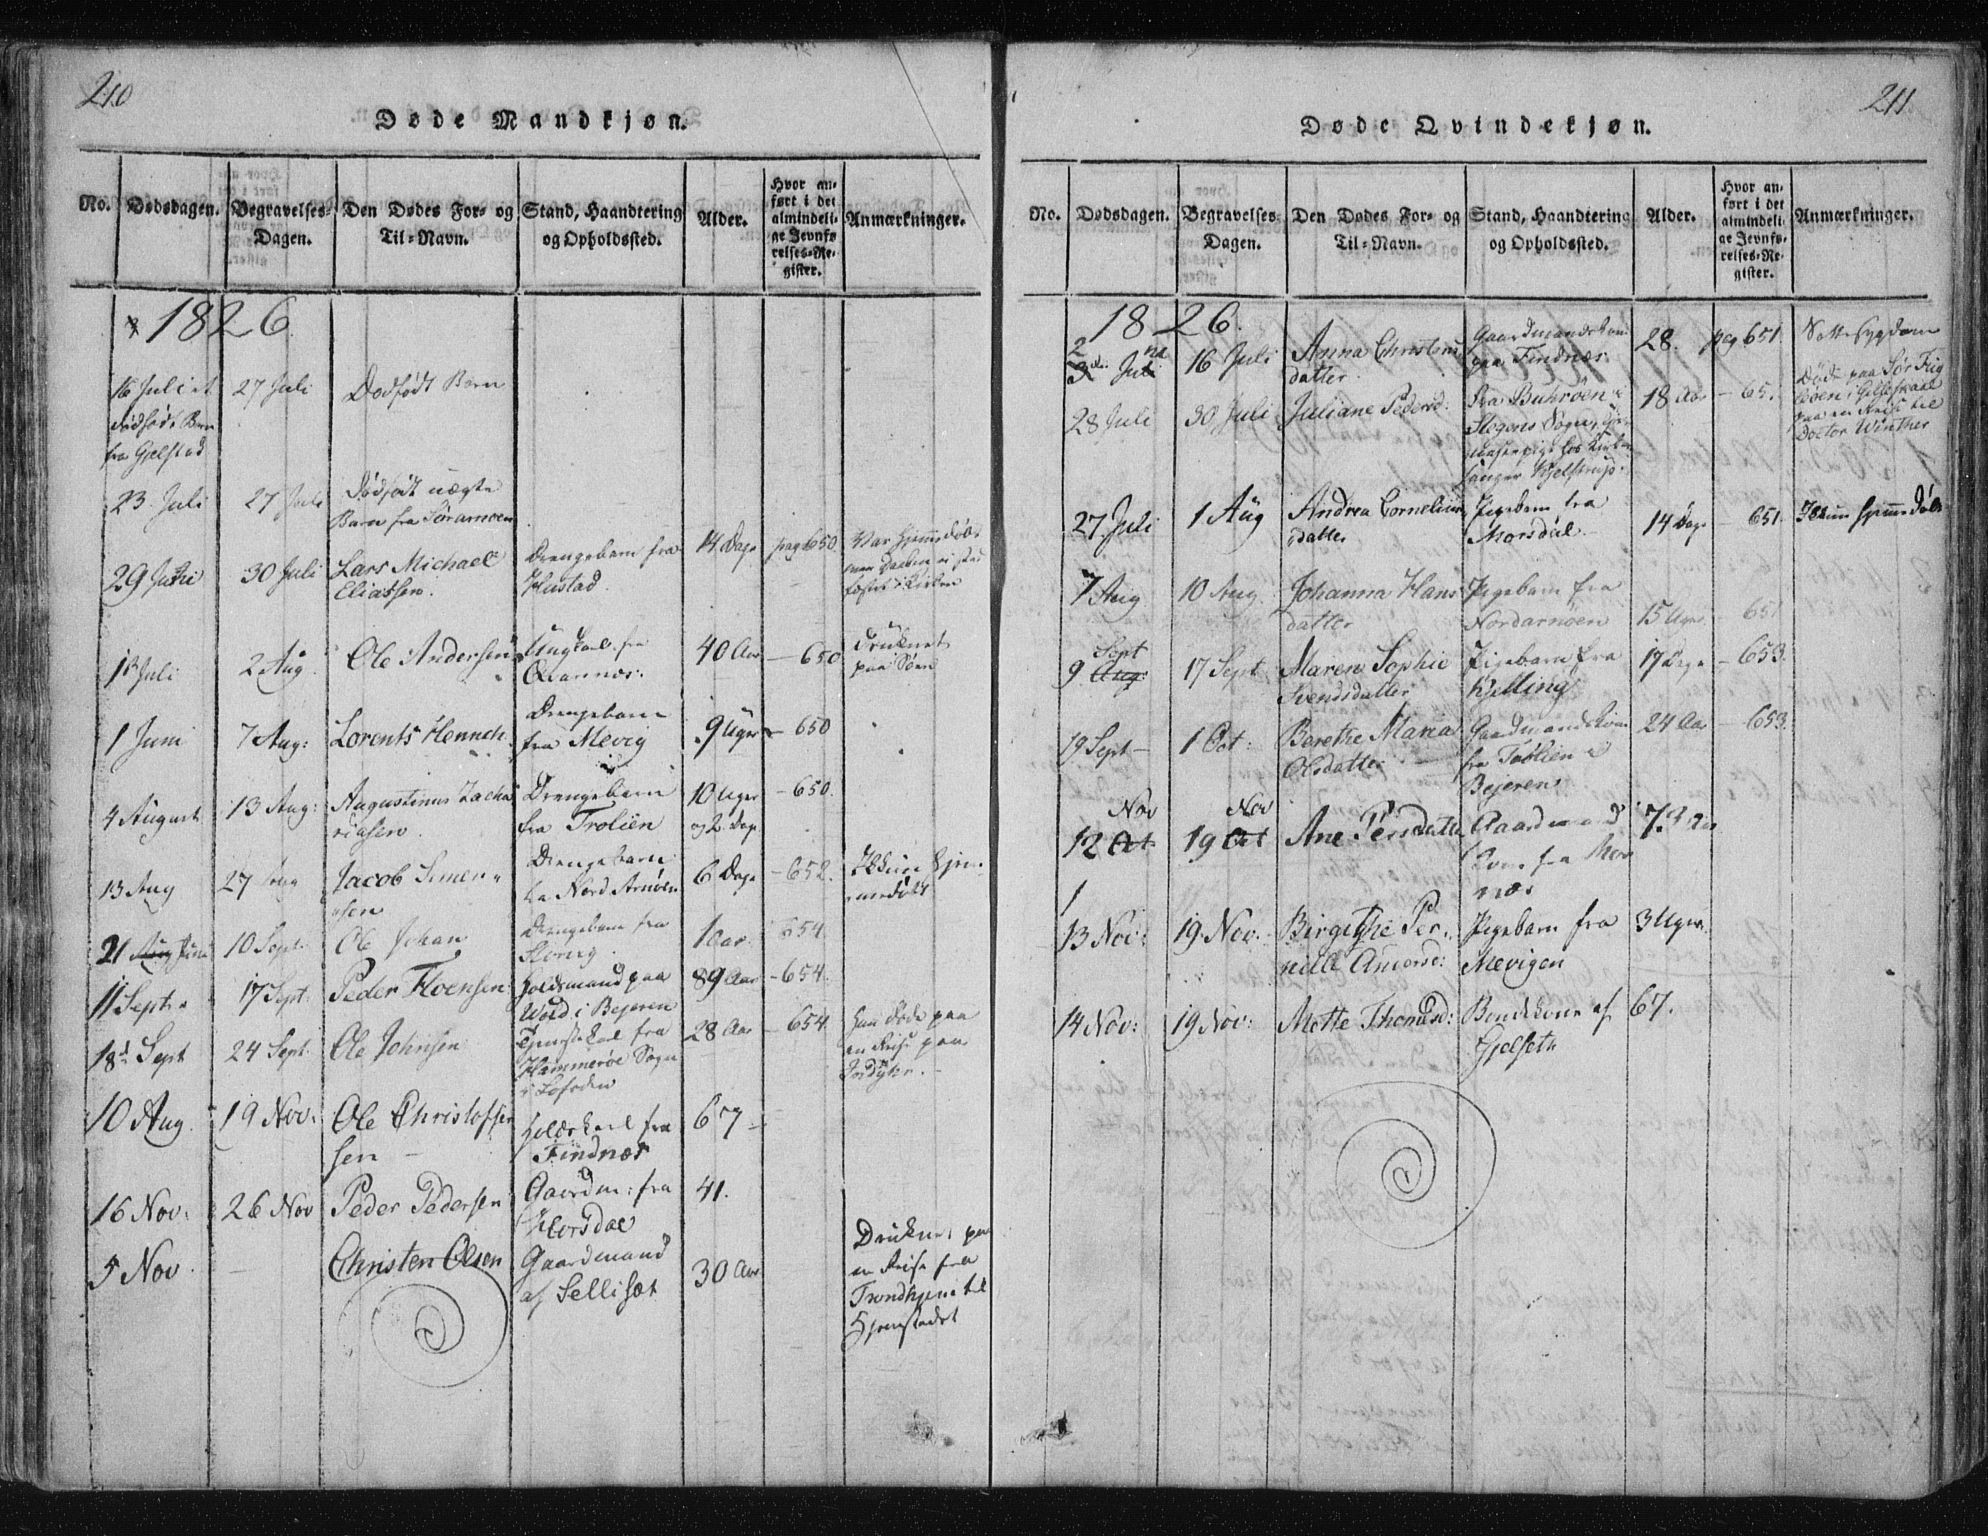 210
Døde Mandkjøn.
No.
Dødsdagen.
Begravelses-
Dagen.
Den Dødes For- og
Til-Navn.
Stand, Haandtering
og Opholdssted.
Alder.
Hvor an-
ført i det
almindeli-
ge Jevnfø-
relses-Re-
gister.
Anmærkninger.
1826
16 Juli et
dødfødt Barn
fra Gjelstad
27 Juli
Dødfødt Barn
23 Juli
27 Juli
Dødfødt uægte
Barn fra Sørarnoen
29 Juni
30 Juli
Lars Michael
Eliassen.
Drengebarn fra
Hustad.
14 Dage
pag 650.
Var hjemmedøbt
1 Juli
2 Aug
Ole Andersen
Ungkarl fra
Qvannæs.
40 Aar
- 650
Druknet
paa Søen
1 Juni
7 Aug:
Lorents Hennch.
Drengebarn
fra Mevig
9 Uger
- 650
4 August
13 Aug:
Augustinus Zacha
riasen.
Drengebarn
fra Trolien
10 Uger
og 2 Dage
- 650.
13 Aug
27 Aug
Jacob Simen-
sen
Drengebarn
fra Nord Arnøen
6 Dage
- 652.
Ikkun hjem-
medøbt
21 Aug Juni
10 Sept:
Ole Johan
Drengebarn fra
1 Aar.
654
11 Sept:
17 Sept:
Peder Floensen
Holdsmand paa
Wold i Bejeren
89 Aar
- 654.
18d Sept
24 Sept:
Ole Johnsen
Tjenestekarl fra
Hammerøe Sogn
i Lofoden
28 Aar
- 654.
han døde paa
en Reise paa
10 Aug.
19 Nov:
Ole Christofer
sen -
fra
Findnæs
67 -
16 Nov:
26 Nov
Peder Pedersen
Gaardm: fra
Horsdal
41.
5 Nov
Christen Olsen
Gaardmand
af Sellisæt
30 Aar
Druknet paa
en Reise fra
Trondhjem til
Hjemstedet
211
Døde Qvindekjøn.
No.
Dødsdagen.
Begravelses-
Dagen.
Den Dødes For- og
Til-Navn.
Stand, Haandtering
og Opholdssted.
Alder.
Hvor an-
ført i det
almindeli-
ge Jevnfø-
relses-Re-
gister.
Anmærkninger.
1826.
2
3 Juli
16 Juli
Anna Christens
datter.
Gaardmandskone
paa Findnæs.
28.
pag 651.
28 Juli
30 Juli
Juliane Pedersd:
Fra Buhrøen i
Stegens Sogn,
18 Aar
- 65.
Døde paa Sør Fug
løen i Gilleskaal
paa en Reise til
Doctor Winther
27 Juli
1 Aug
Andrea Cornelius
datter
Pigebarn fra
Morsdal.
14 Dage
- 651.
Ikkun hjemmedøbt
7 Aug
10 Aug.
Johanna Hans
datter
Pigebarn fra
Nordarnøen
15 Uger
- 651
Sept
9 Aug:
17 Sept:
Maren Sophie
Svendsdatter
Pigebarn fra
Kjelling
17 Dage
- 653.
19 Sept -
1 Oct:
Berethe Maria
Olsdatter
Gaardmandskone
fra Tollien i
Bejeren
24 Aar
- 653.
Nov
12 Oct
Nov
19 Oct
Ane Persdatter
Gaardmands
Kone fra Mor
næs
73 Aar
13 Nov:
19 Nov:
Birgithe Per-
nille Andersd:
Pigebarn fra
Mevigen
3 Uger.
14 Nov:
19 Nov:
Mette Thomasd:
Bondekone af
Gjelseth
67.